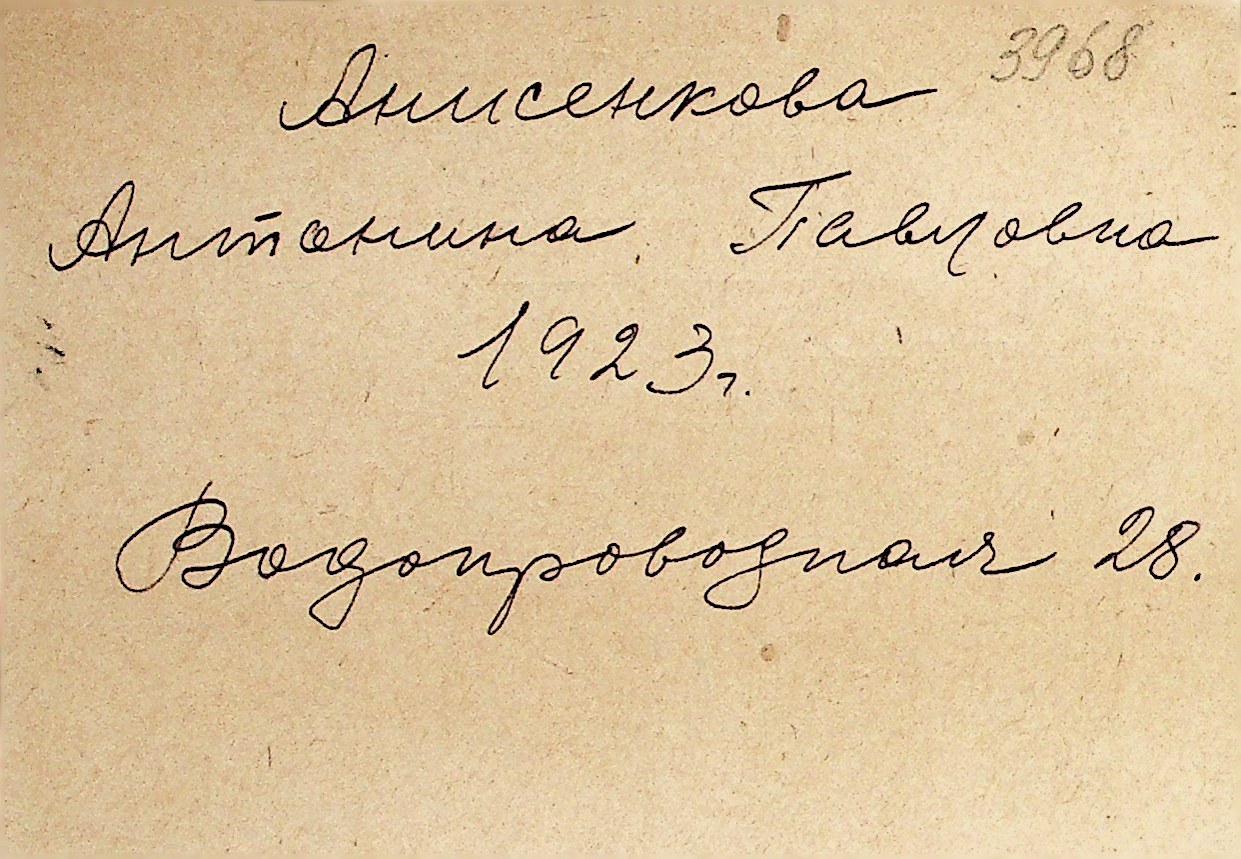 3968
Анисенкова
Антонина Павловна
1923г.
Водопроводная 28.